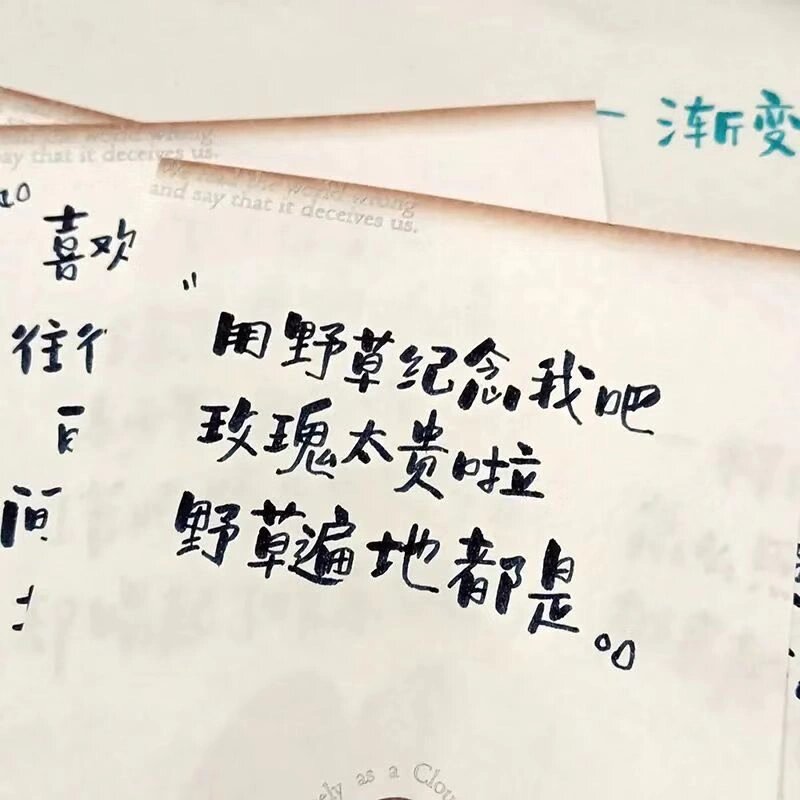 渐变
say that it deceives us.
We read the world wrong
and say that it deceives us.
喜欢
"用野草纪念我吧
玫瑰太贵啦
野草遍地都是。
as a Clou